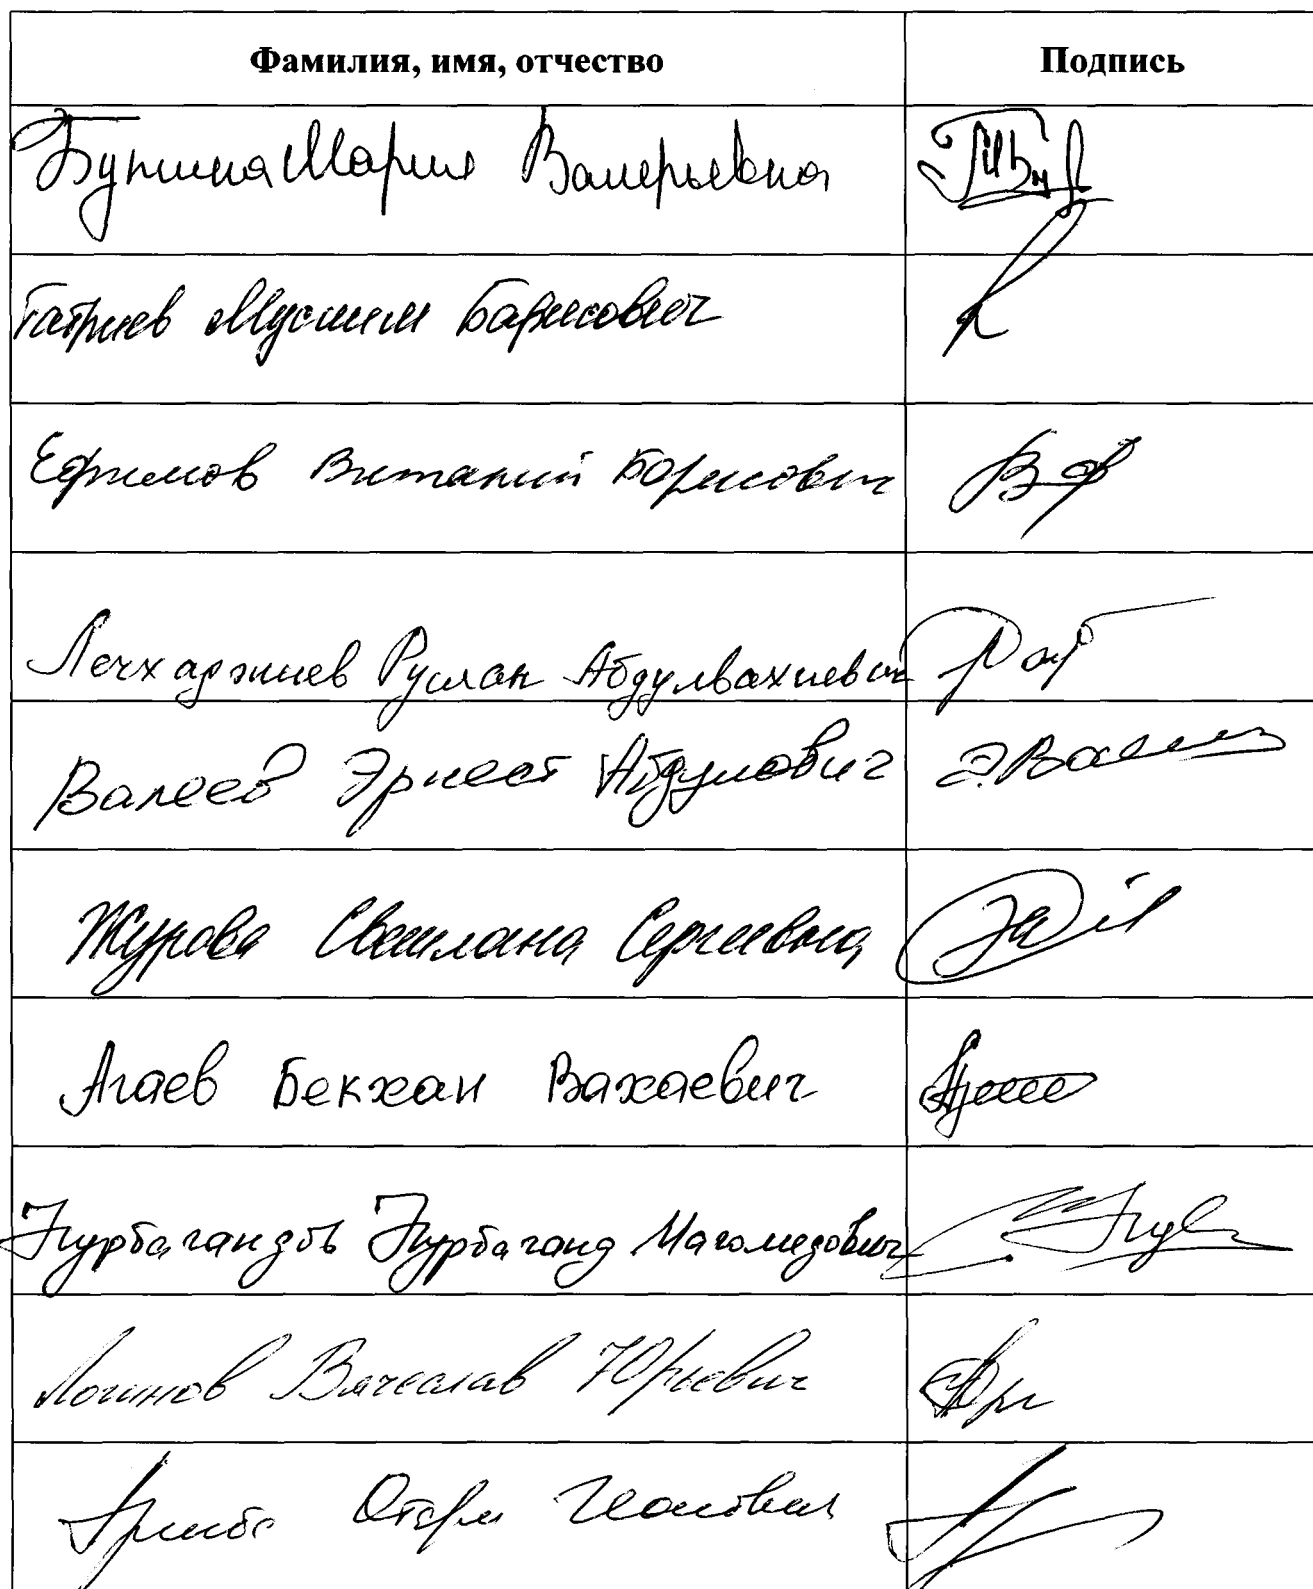 Фамилия, имя, отчество Подпись
Бутина Мария Валерьевна
Татриев Муслим Барисович
Ефимов Виталий Борисович
Лечхаджиев Руслан Абдулвахиевич
Валеев Эрнест Абдулович Э.Валеев
Журова Светлана Сергеевна
Агаев Бекхан Вахаевич
Нурбагандов Нурбаганд Магомедович
Логинов Вячеслав Юрьевич
Аршба Отари Ионович